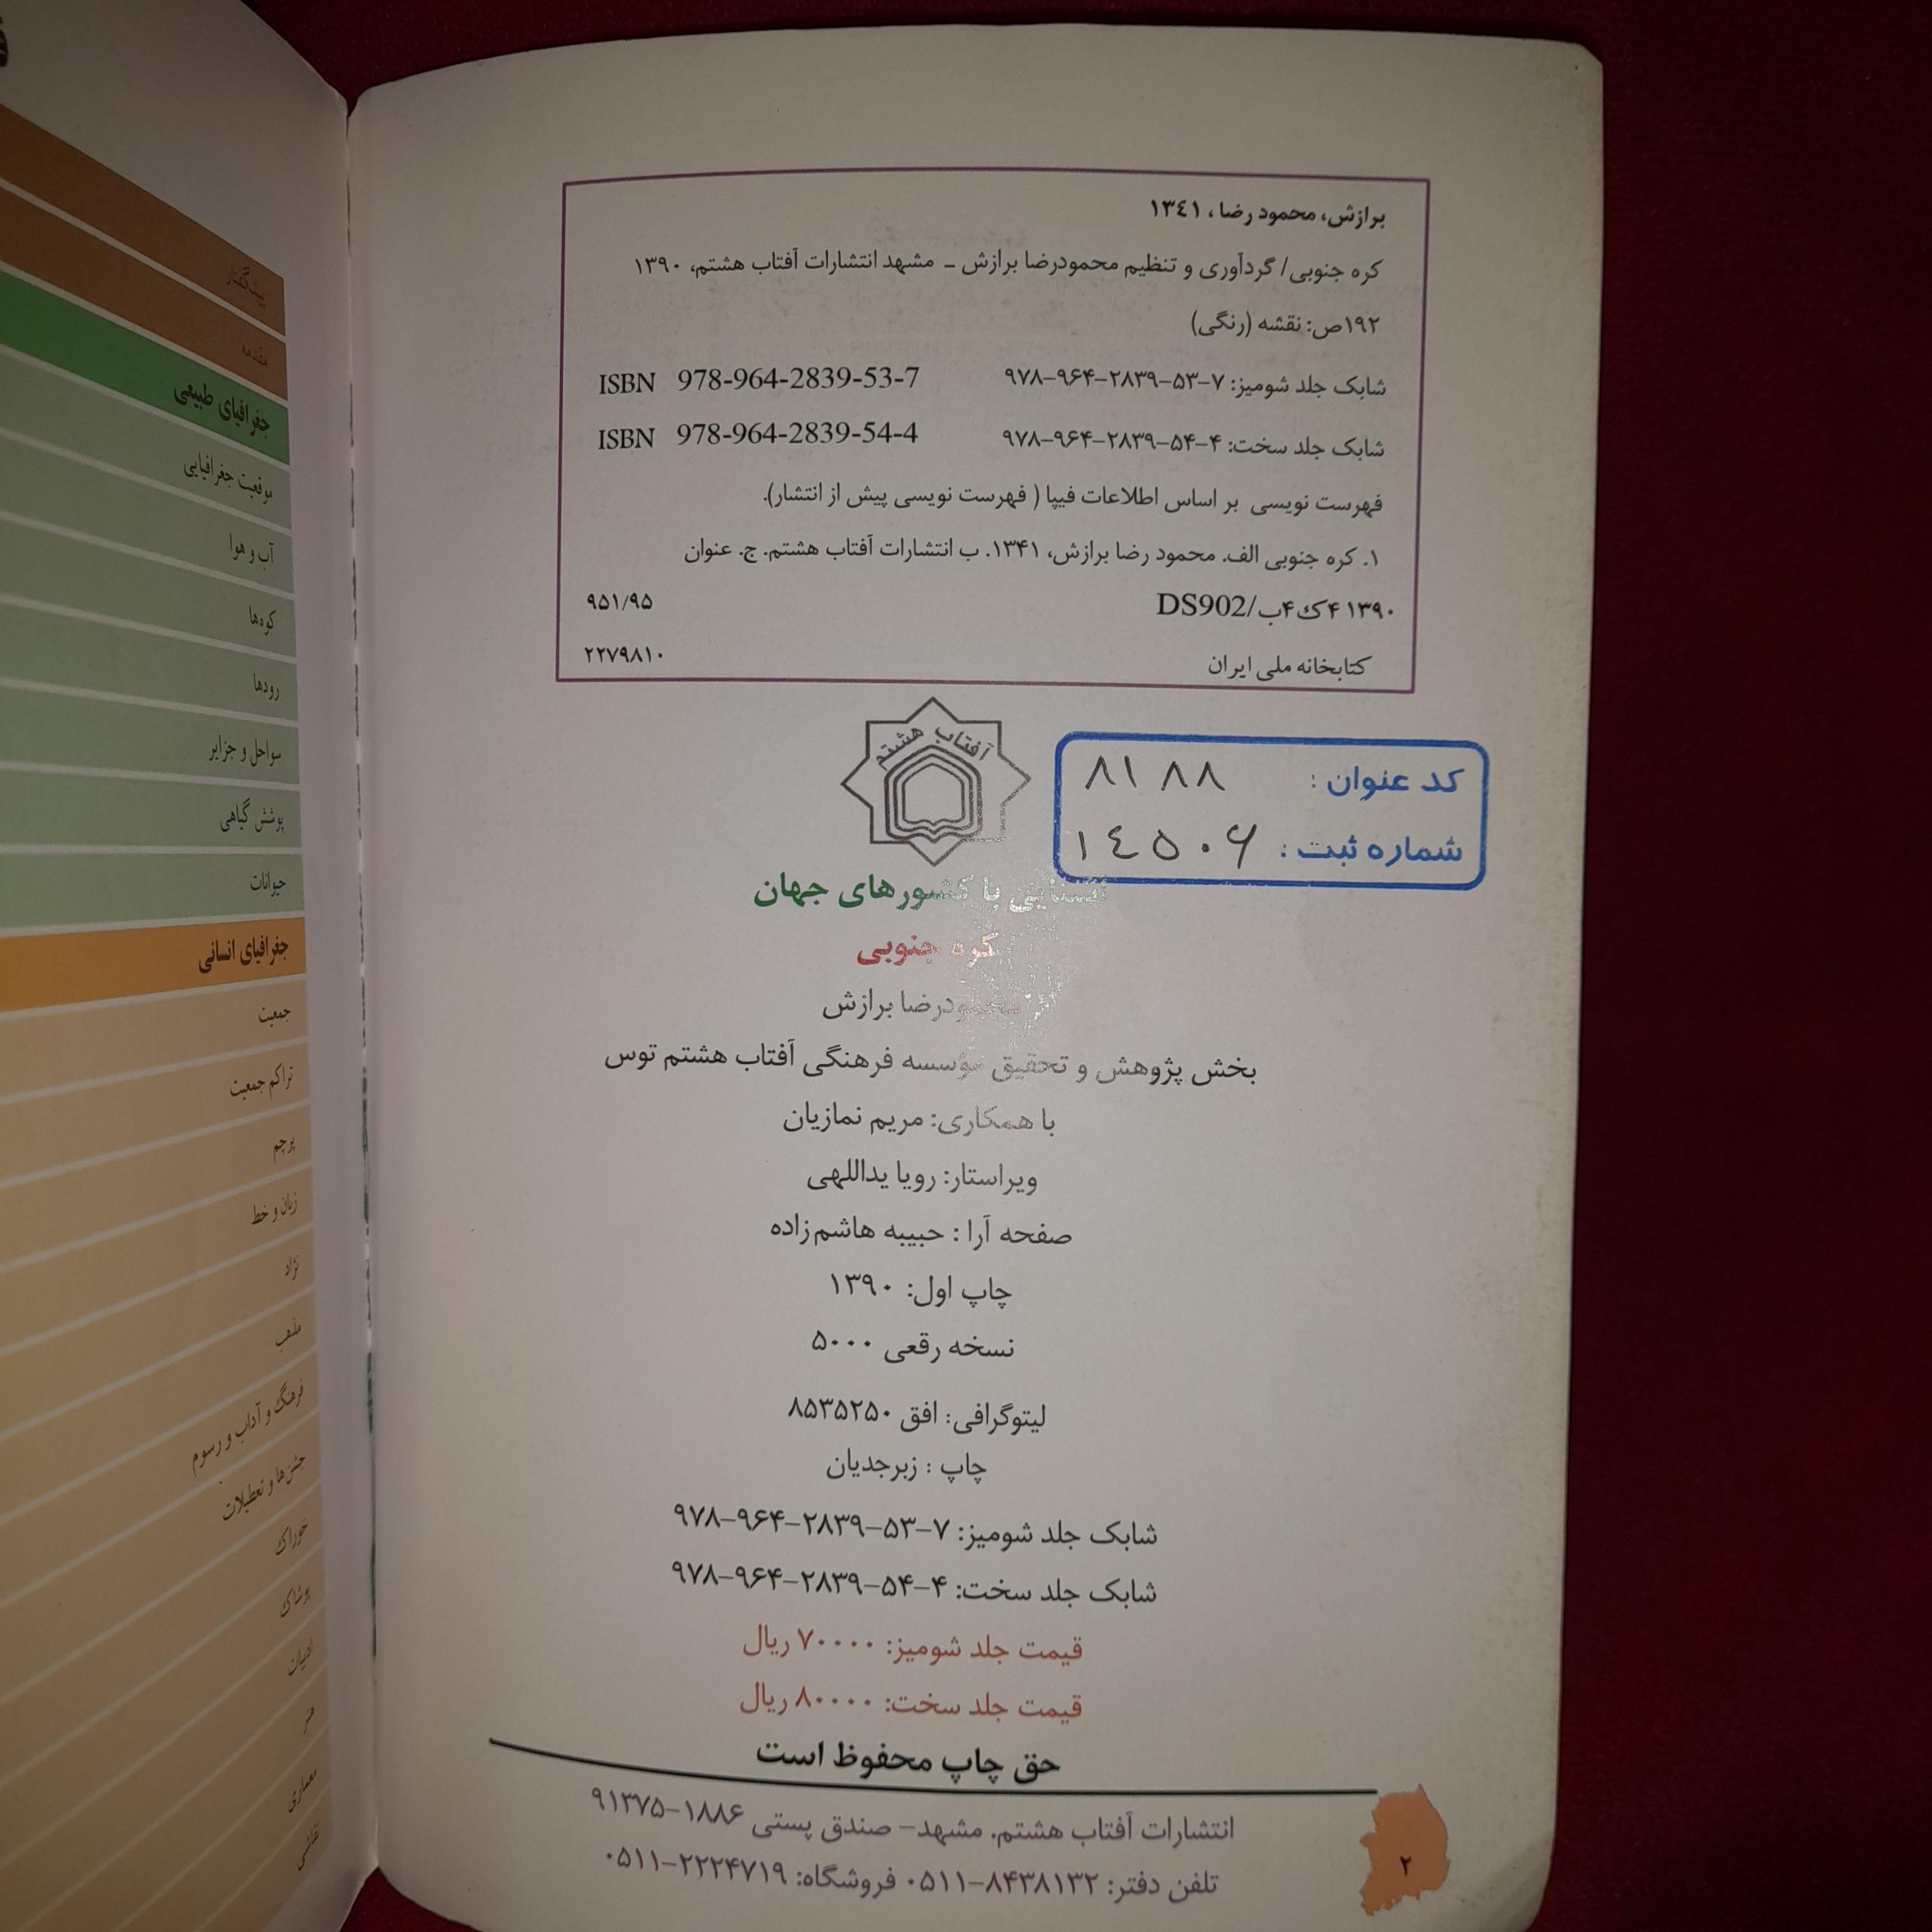 برازش، محمود رضا، ۱۳٤۱
کره جنوبی/ گردآوری و تنظیم محمودرضا برازش ـ مشهد انتشارات آفتاب هشتم، ۱۳۹۰
۱۹۲ص: نقشه (رنگی)
شابک جلد شومیز: ۷-۵۳-۲۸۳۹-۹۶۴-۹۷۸ ISBN 978-964-2839-53-7
شابک جلد سخت: ۴-۵۴-۲۸۳۹-۹۶۴-۹۷۸ ISBN 978-964-2839-54-4
فهرست نویسی بر اساس اطلاعات فیپا ( فهرست نویسی پیش از انتشار).
۱. کره جنوبی الف. محمود رضا برازش، ۱۳۴۱. ب انتشارات آفتاب هشتم. ج. عنوان
۱۳۹۰ ۴ک۴ب/DS902 ۹۵۱/۹۵
کتابخانه ملی ایران ۲۲۷۹۸۱۰
آفتاب هشتم
کد عنوان : ۸۱۸۸
شماره ثبت : ۱٤۵۰۶
آشنایی با کشورهای جهان
کره جنوبی
محمودرضا برازش
بخش پژوهش و تحقیق مؤسسه فرهنگی آفتاب هشتم توس
با همکاری: مریم نمازیان
ویراستار: رویا یداللهی
صفحه آرا : حبیبه هاشم‌زاده
چاپ اول: ۱۳۹۰
نسخه رقعی ۵۰۰۰
لیتوگرافی: افق ۸۵۳۵۲۵۰
چاپ : زبرجدیان
شابک جلد شومیز: ۷-۵۳-۲۸۳۹-۹۶۴-۹۷۸
شابک جلد سخت: ۴-۵۴-۲۸۳۹-۹۶۴-۹۷۸
قیمت جلد شومیز: ۷۰۰۰۰ ریال
قیمت جلد سخت: ۸۰۰۰۰ ریال
حق چاپ محفوظ است
انتشارات آفتاب هشتم. مشهد- صندق پستی ۱۸۸۶-۹۱۳۷۵
تلفن دفتر: ۸۴۳۸۱۳۲-۰۵۱۱ فروشگاه: ۲۲۲۴۷۱۹-۰۵۱۱
۲
پیشگفتار
مقدمه
جغرافیای طبیعی
موقعیت جغرافیایی
آب و هوا
کوه‌ها
رودها
سواحل و جزایر
پوشش گیاهی
حیوانات
جغرافیای انسانی
جمعیت
تراکم جمعیت
پرچم
زبان و خط
نژاد
مذهب
فرهنگ و آداب و رسوم
جشن‌ها و تعطیلات
خوراک
پوشاک
ادبیات
هنر
معماری
نقاشی